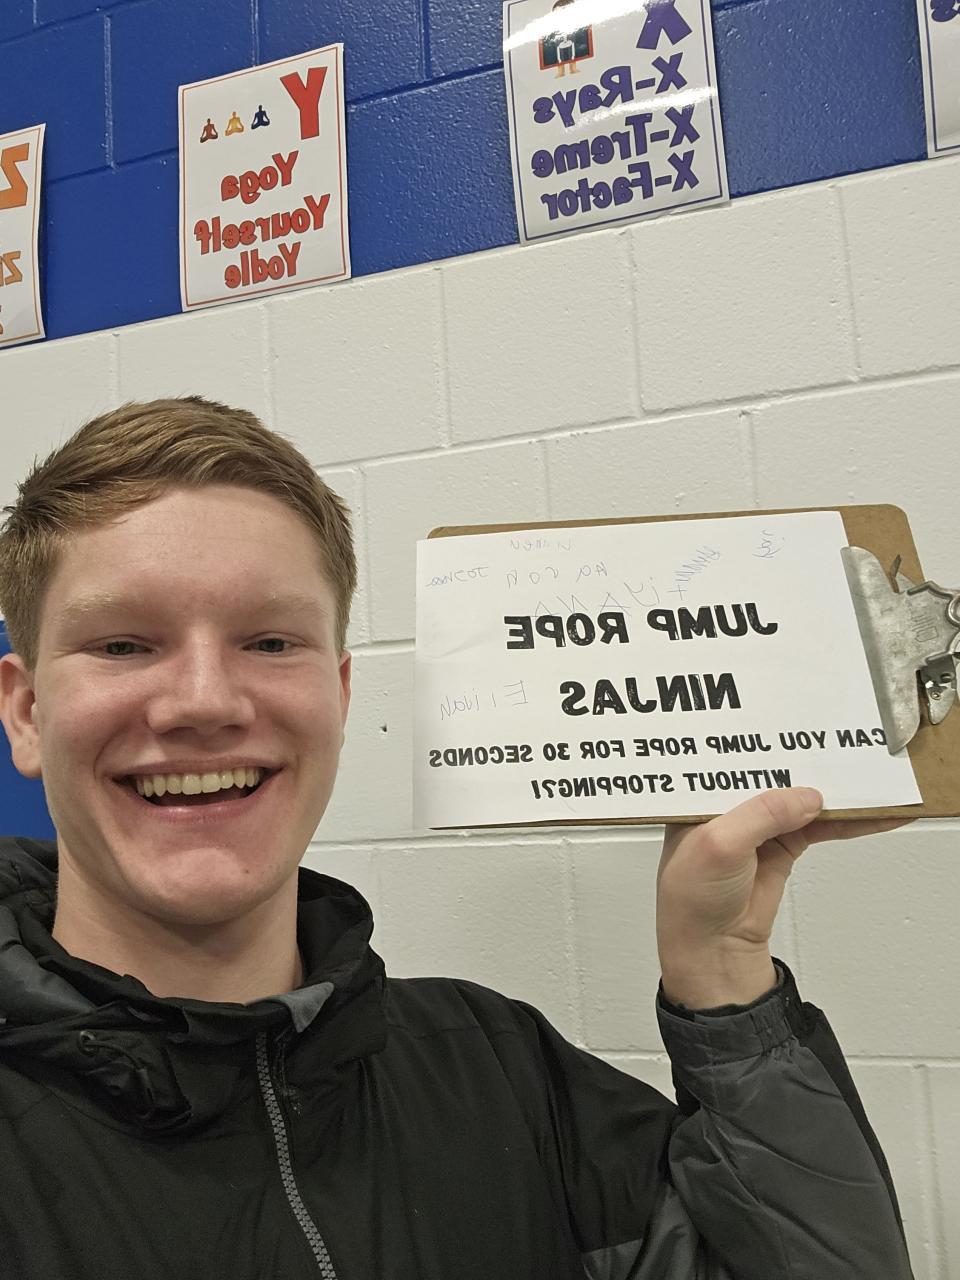 Z
Y
Yoga
Yourself
Yodle
X
X-Rays
X-Treme
X-Factor
Jay
AARON
tiYANA
JUMP ROPE
NINJAS
Elijah
CAN YOU JUMP ROPE FOR 30 SECONDS
WITHOUT STOPPING?!